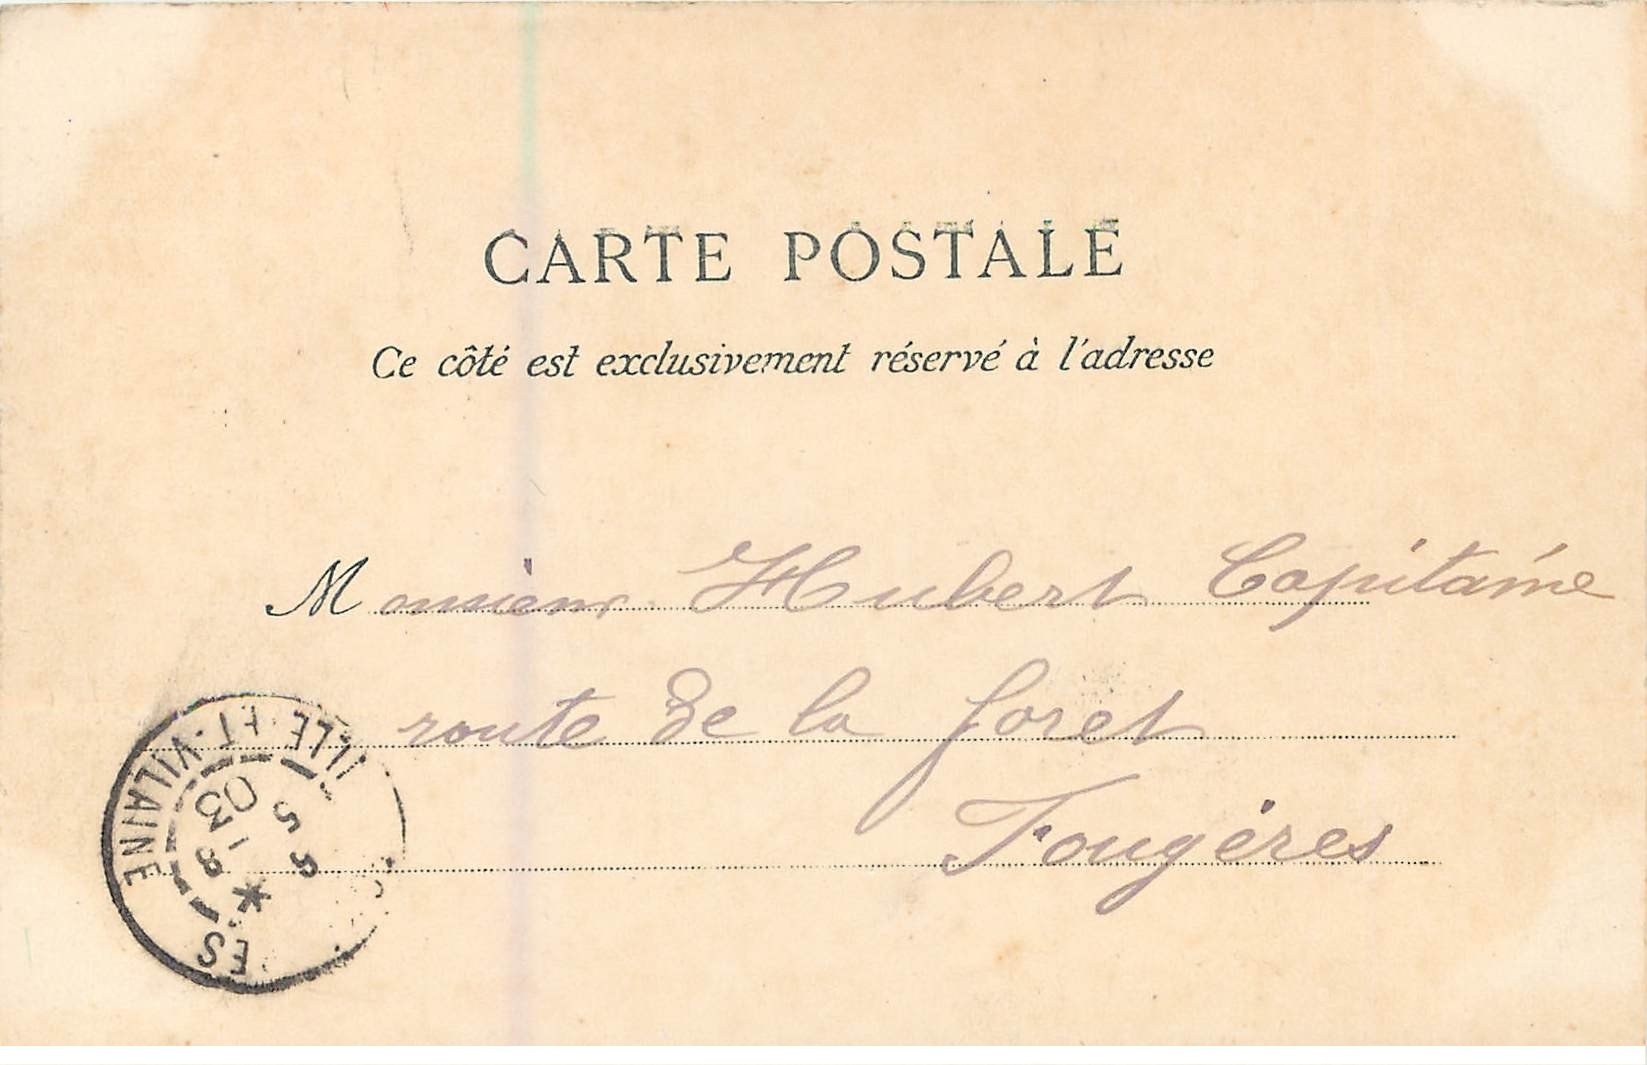 CARTE POSTALE
Ce côté est exclusivement réservé à l'adresse
Monsieur Hubert Capitaine
route de la foret
Fougères
ES
ILLE-ET-VILAINE
03